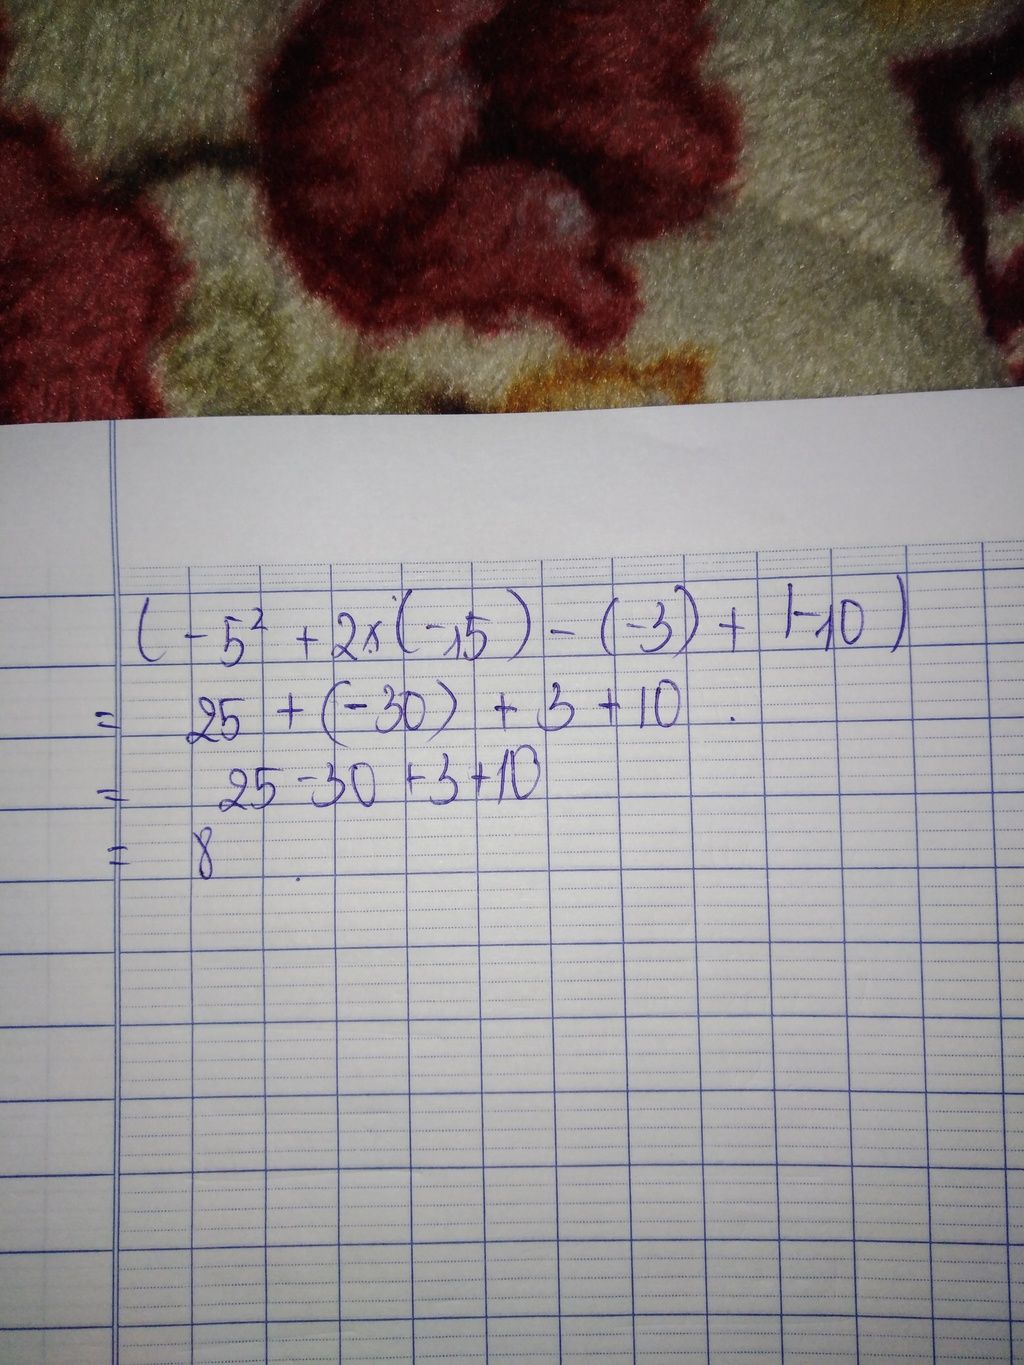 ( - 5² + 2x (-15) - (-3) + |-10 )
= 25 + (-30) + 3 + 10 .
= 25 - 30 + 3 + 10
= 8